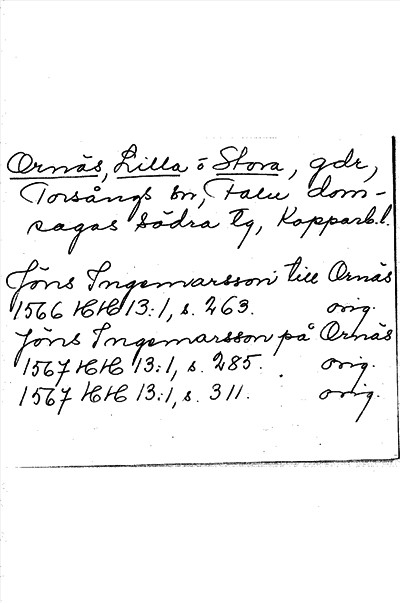 Ornäs, Lilla o Stora, gdr,
Torsångs sn, Falu dom-
sagas södra tg, Kopparb.l.
Jöns Ingemarsson till Ornäs
1566 HH 13:1, s. 263. orig.
Jöns Ingemarsson på Ornäs
1567 HH 13:1, s. 285. orig.
1567 HH 13:1, s. 311. orig.